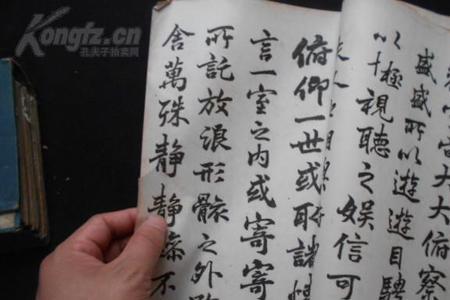 Kongfz.cn
孔夫子拍卖网
大大俯察
盛盛所以遊遊目騁
以極視聽之娛信可
俯仰一世或取諸
言一室之內或寄寄
所託放浪形骸之外
舍萬殊靜靜躁不